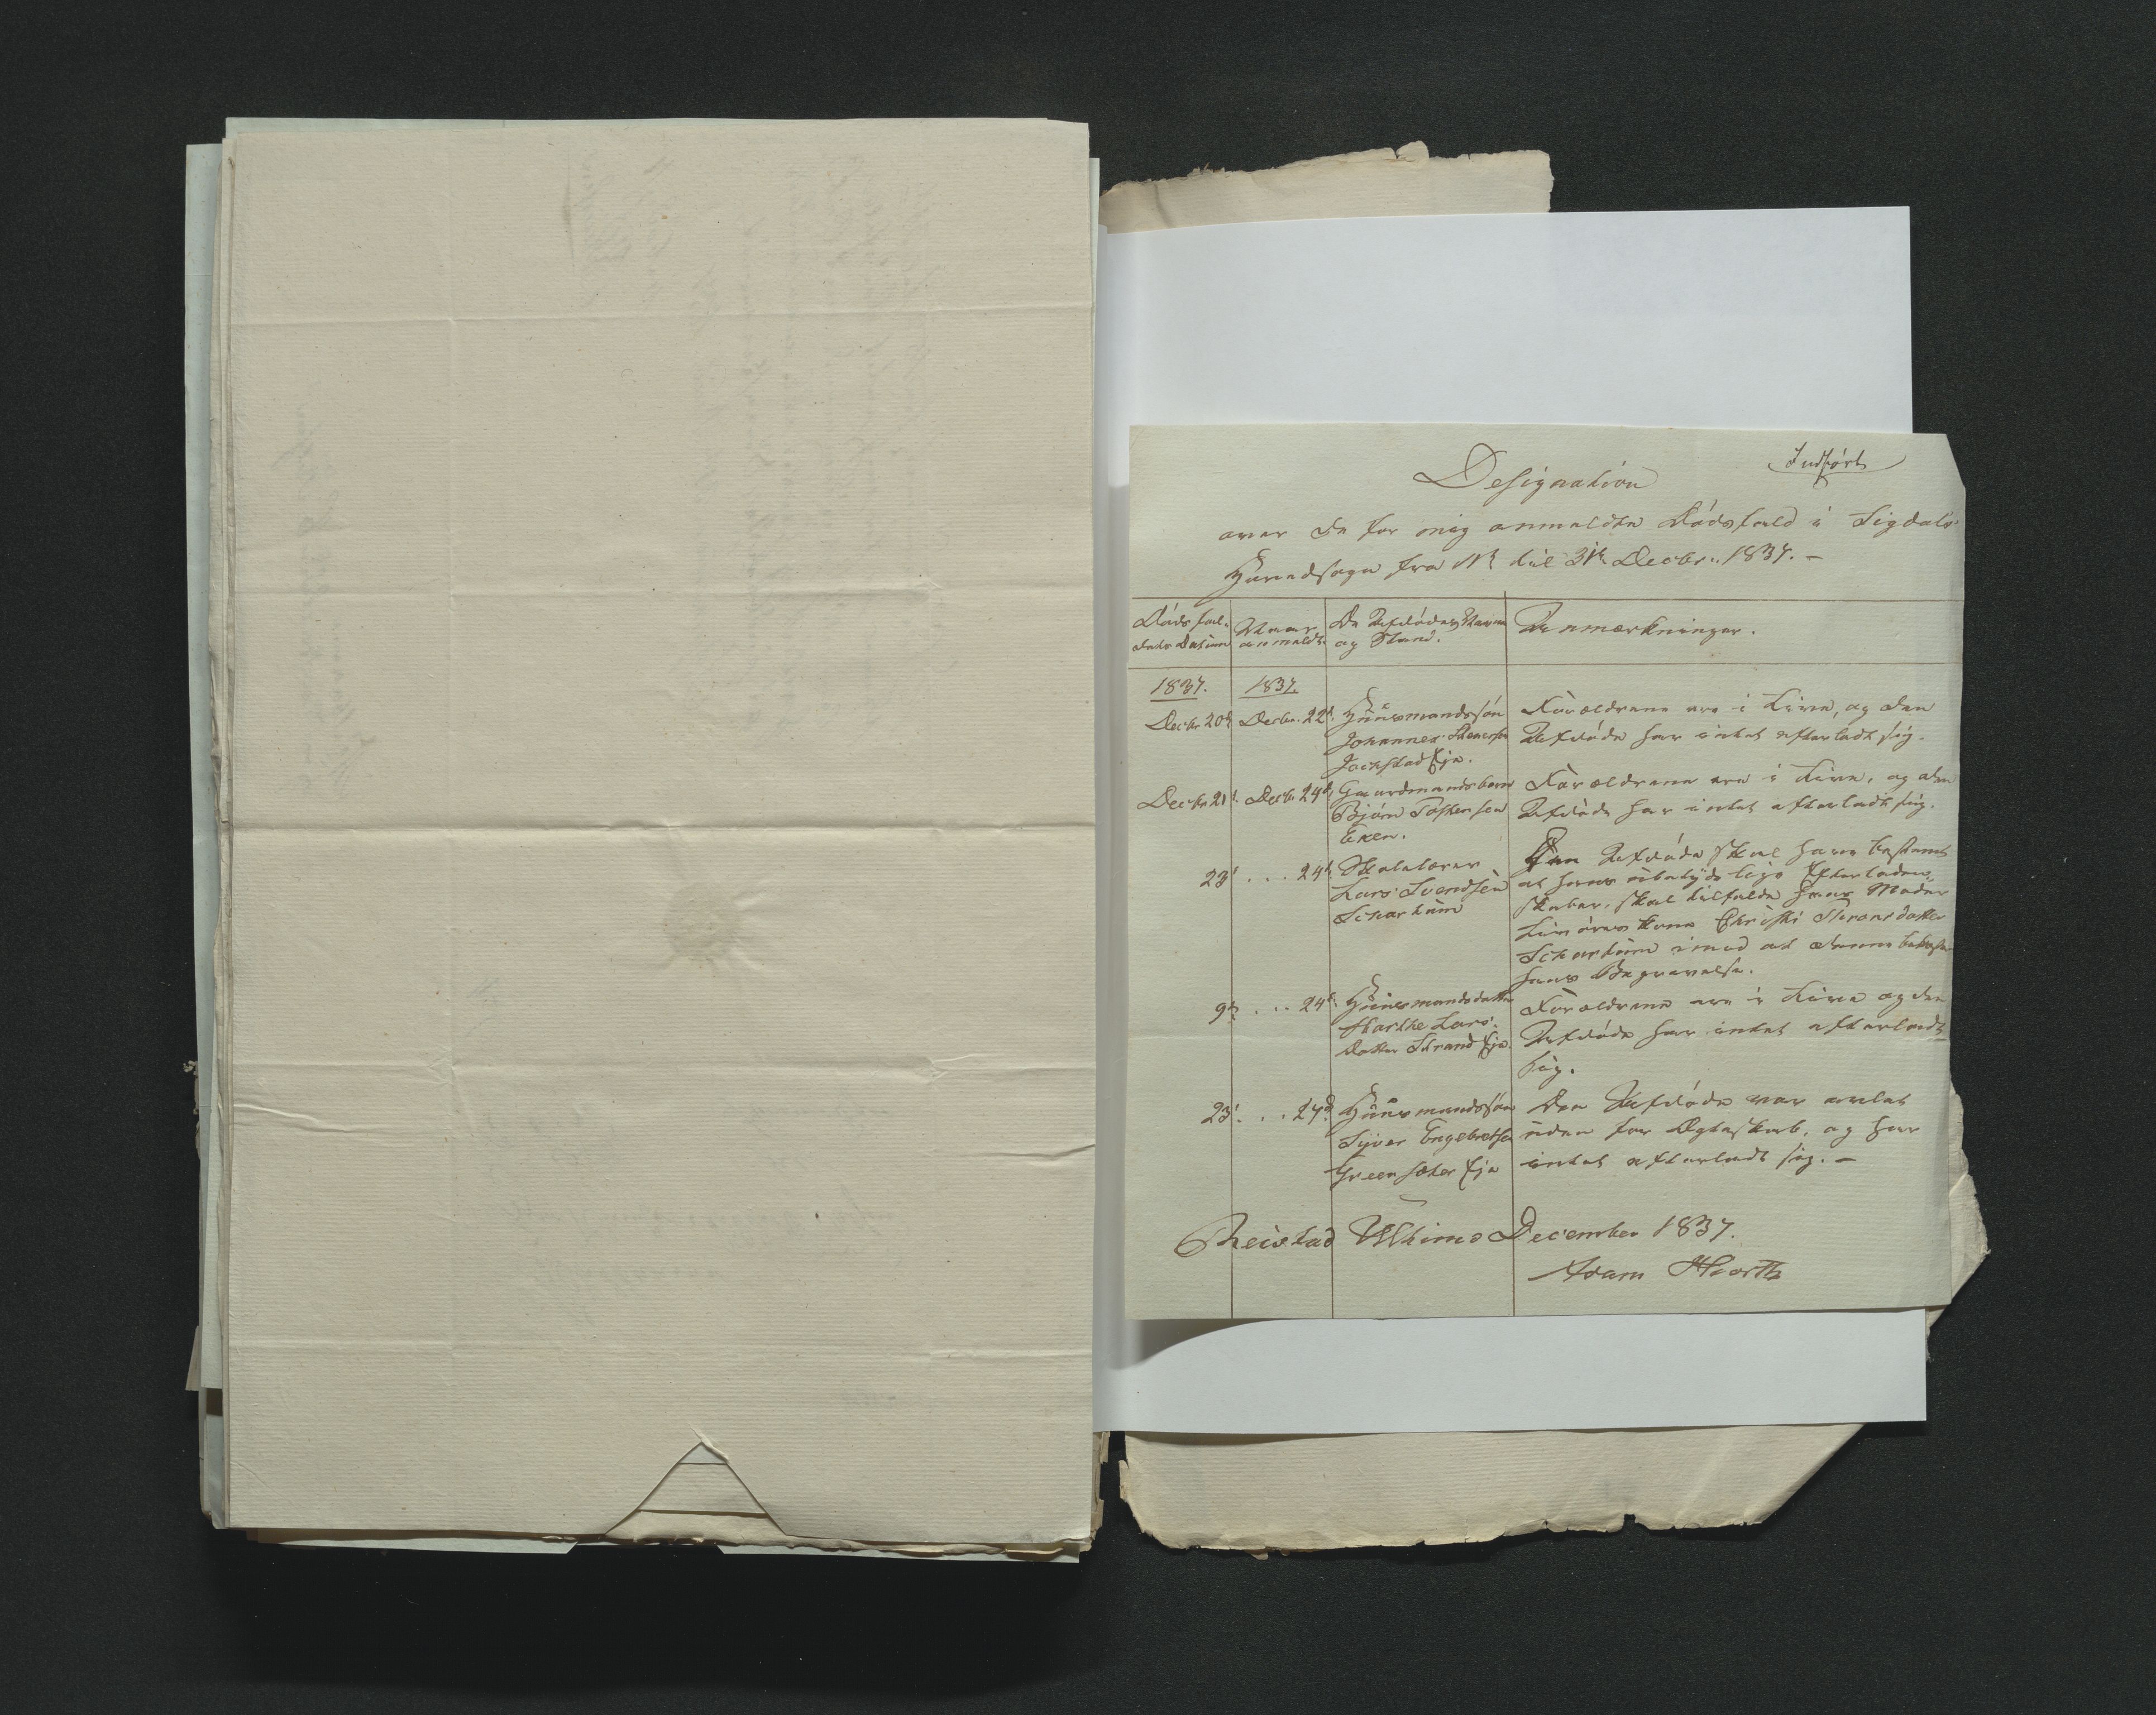 Indført
Designation
over de for mig anmeldte Dødsfald i Sigdals
Herredsogn fra 1te til 31te Decbr. 1837. –
Døds fal-
dets Datum
Naar
anmeldt.
De Afdødes Navne
og Stand.
Anmærkninger.
1837. 1837.
Decbr 20de Decbr. 22de Huusmandssøn
Johannes Steners:
Jockstad Eje.
Forældrene ere i Live, og den
Afdøde har intet efterladt sig.
Decbr 21de Decbr 24de Gaardmandsbarn
Bjørn Tostensen
Eken.
Forældrene ere i Live, og den
Afdøde har intet efterladt sig.
23de . . . 24de Skolelærer
Lars Svendsen
Schartum
Den Afdøde skal have bestemt
at hans ubetydelige Efterladen-
skaber, skal tilfalde hans Moder
Livøreskone Christi
Schartum imod at denne bekoster
hans Begravelse.
9de . . . 24de Huusmandsdatter
Marthe Lars-
datter Strand Eje.
Forældrene ere i Live og den
Afdøde har intet efterladt
sig.
23de . . 27de Huusmandssøn
Syver Engebretsen
Greensæter Eje
Den Afdøde var avlet
uden for Ægteskab, og har
intet efterladt sig. –
Reistad Ultimo December 1837.
Adam Hiorth